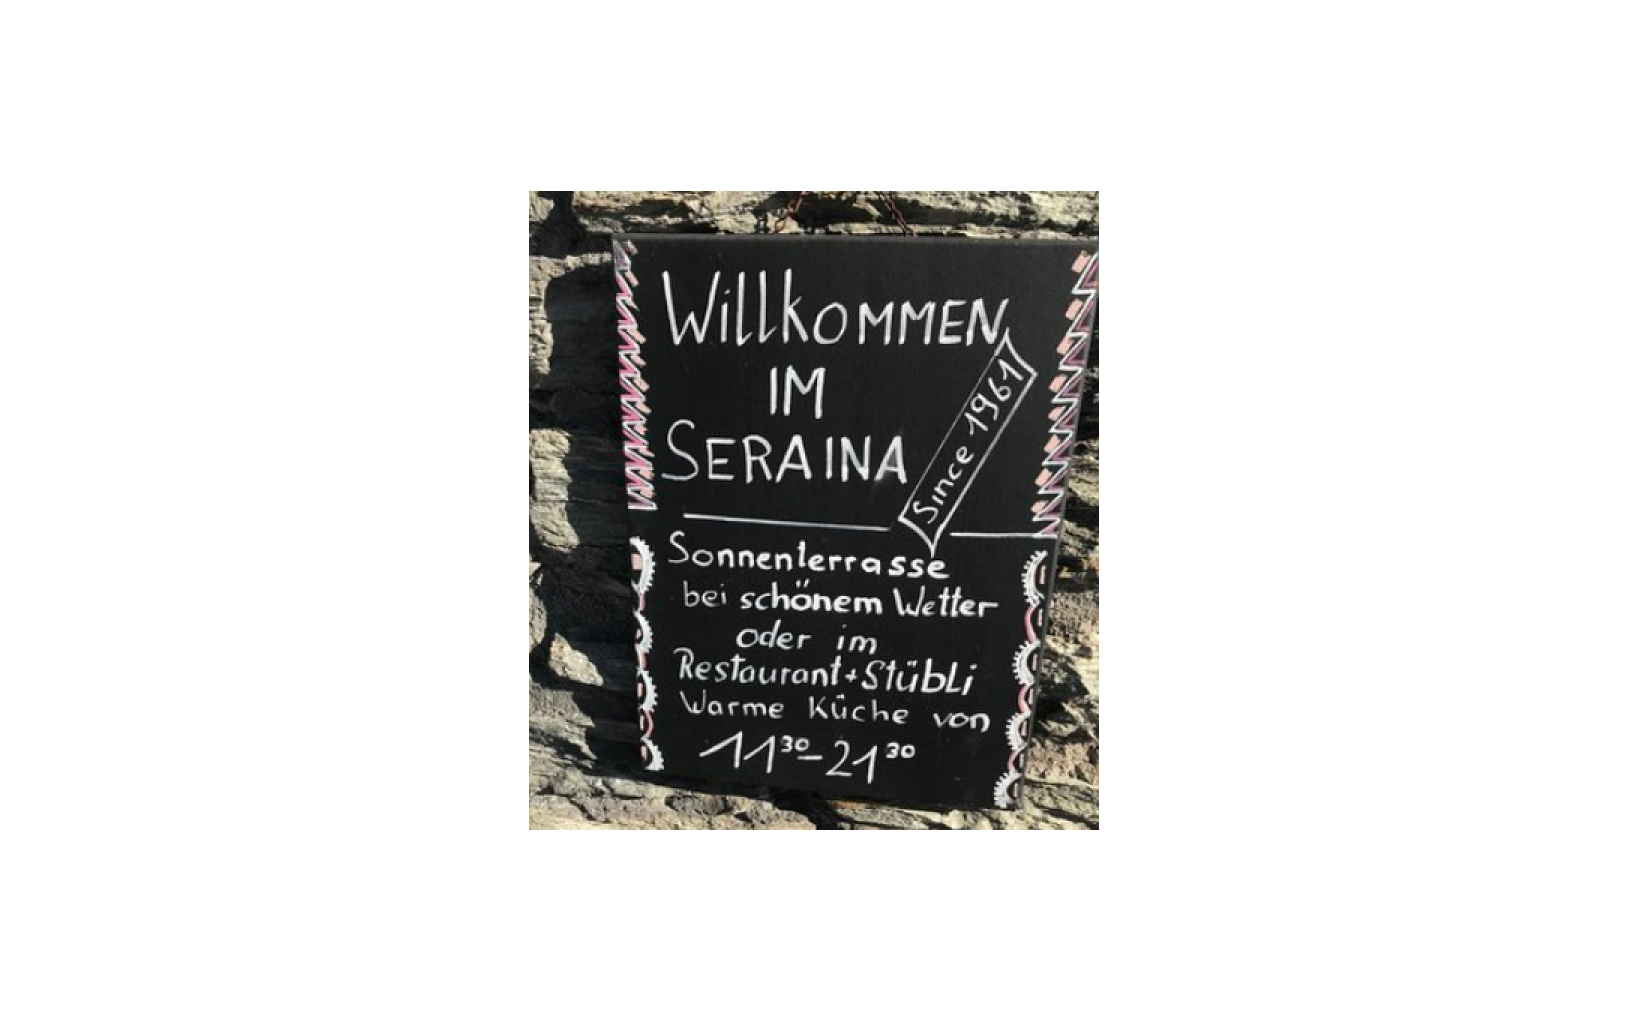 WillkOMMEN
IM
SERAINA
Since 1961
Sonnenterrasse
bei schönem Wetter
oder im
Restaurant+Stübli
Warme Küche von
11³⁰-21³⁰